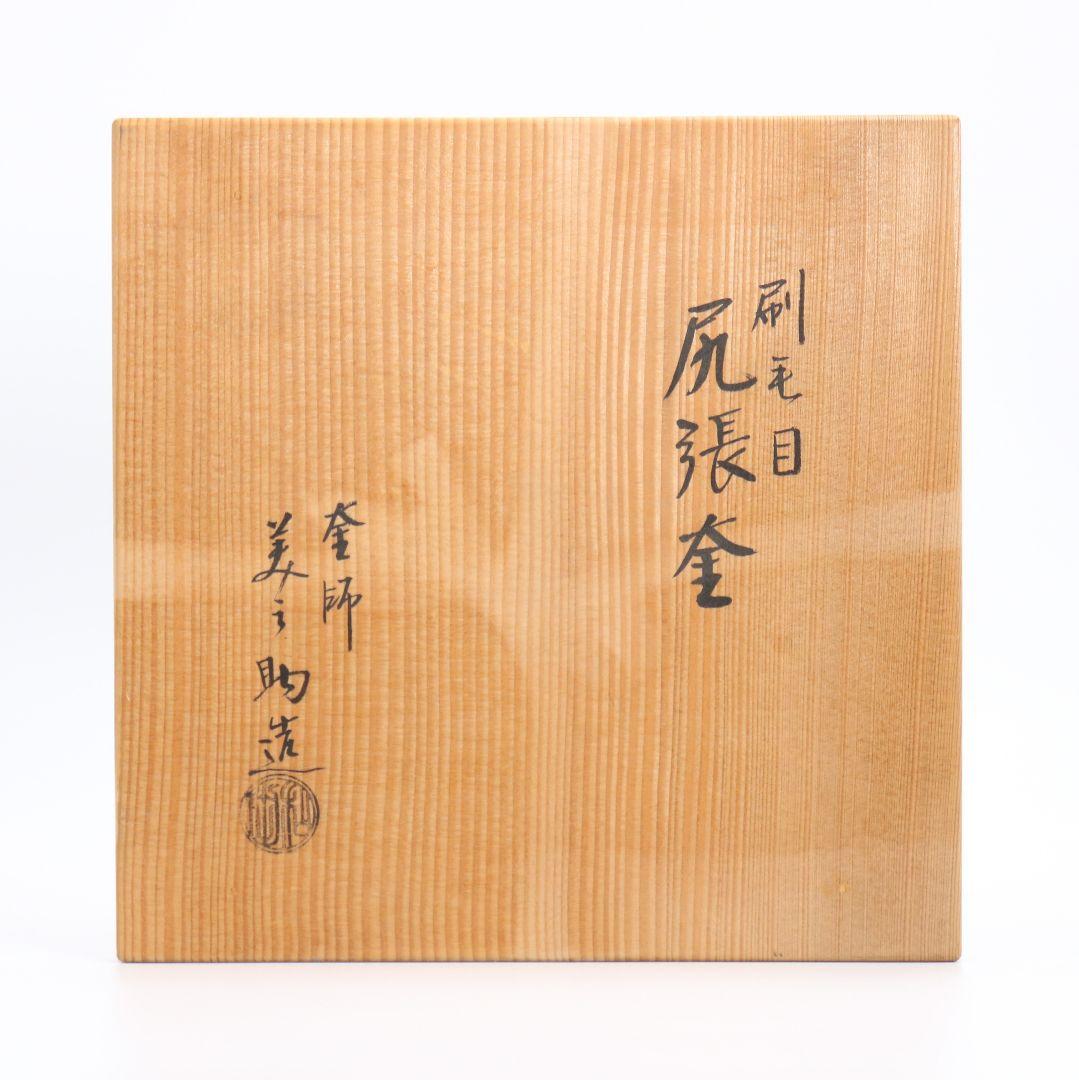 刷毛目
尻張釜
釜師
美之助造